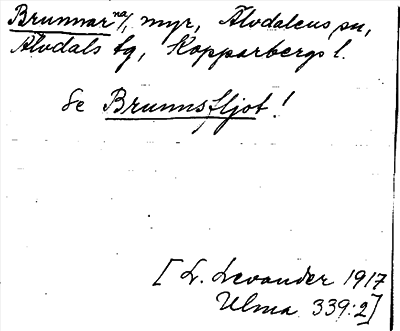 Brunnarna/, myr, Älvdalens sn,
Älvdals tg, Kopparbergs l.
Se Brunnsfljot!
[L. Levander 1917
Ulma 339:2]